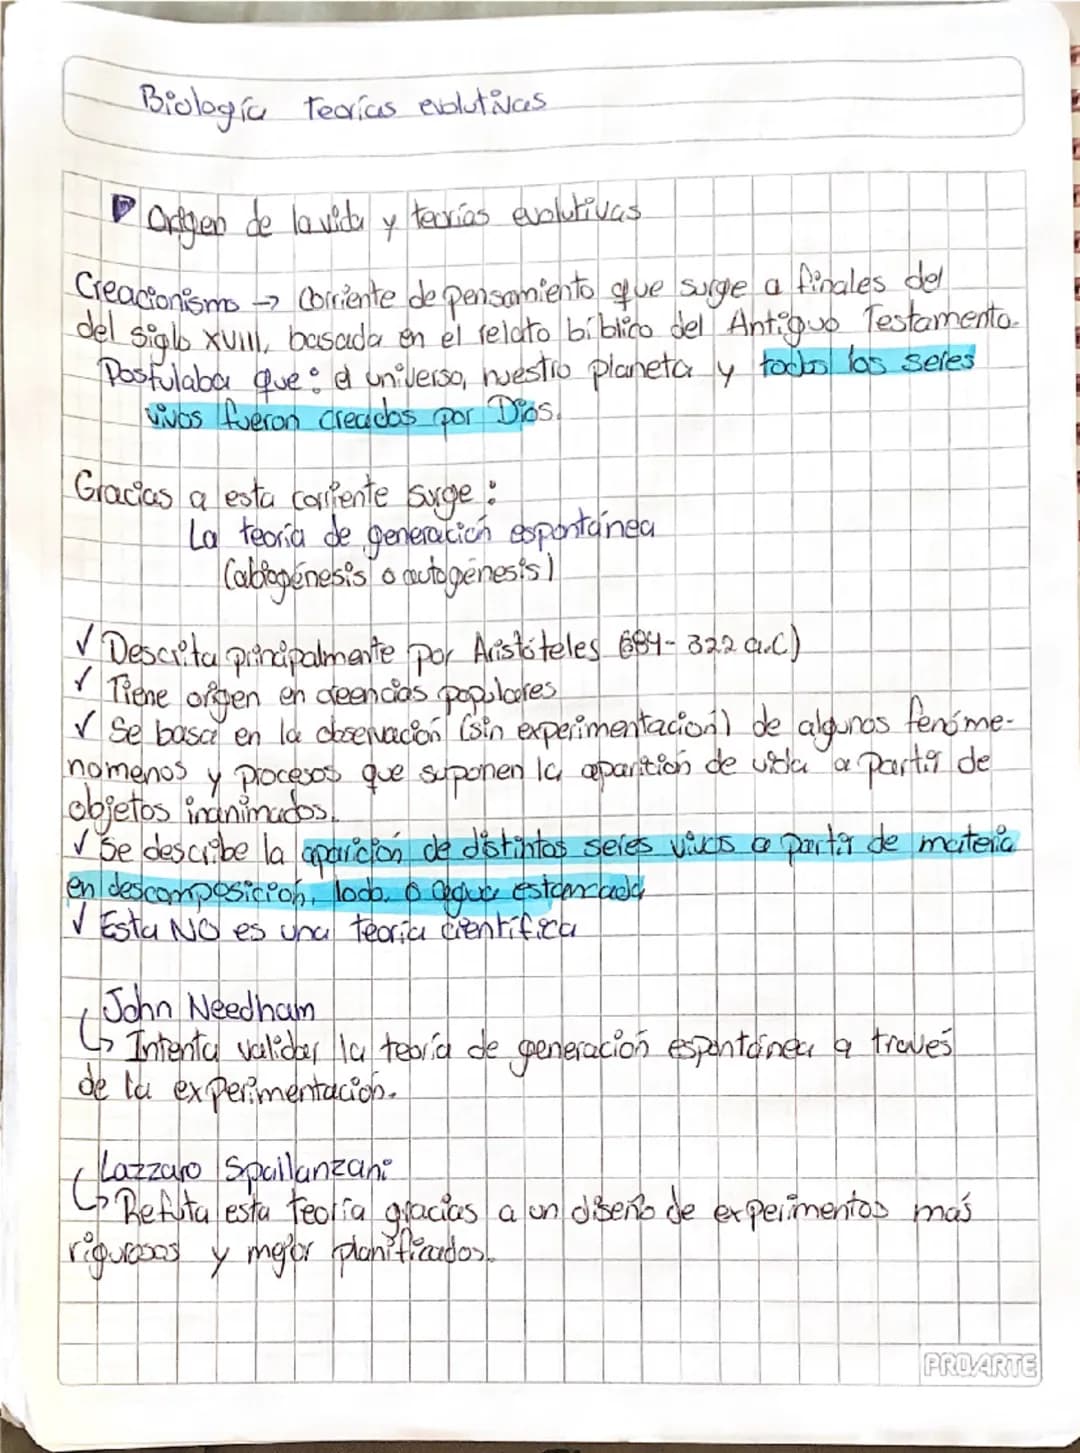 Biología Teorías evolutivas
Origen de la vida y teorías evolutivas
Creacionismo → Corriente de pensamiento que surge a finales del
del siglo XVIII, basada en el relato bíblico del Antiguo Testamento.
Postulaba que: el universo, nuestro planeta y todos los seres
vivos fueron creados por Dios.
Gracias a esta corriente surge:
La teoría de generación espontánea
(abiogénesis o autogénesis)
✓ Descrita principalmente por Aristóteles 684-322 a.C)
✓ Tiene origen en creencias populares
✓ Se basa en la observación (sin experimentación) de algunos fenóme-
nomenos y procesos que suponen la aparición de vida a partir de
objetos inanimados.
✓ Se describe la aparición de distintos seres vivos a partir de materia
en descomposición, lodo, o agua estancada
✓ Esta NO es una teoría científica
John Needham
↳ Intenta validar la teoría de generación espontánea a través
de la experimentación.
Lazzaro Spallanzani
↳ Refuta esta teoría gracias a un diseño de experimentos más
rigurosos y mejor planificados.
PROARTE